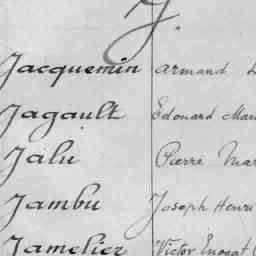 J.
Jacquemin Armand
Jagault Edouard Mari
Jalu Pierre Mar
Jambu Joseph Henri
Jamelier Victor